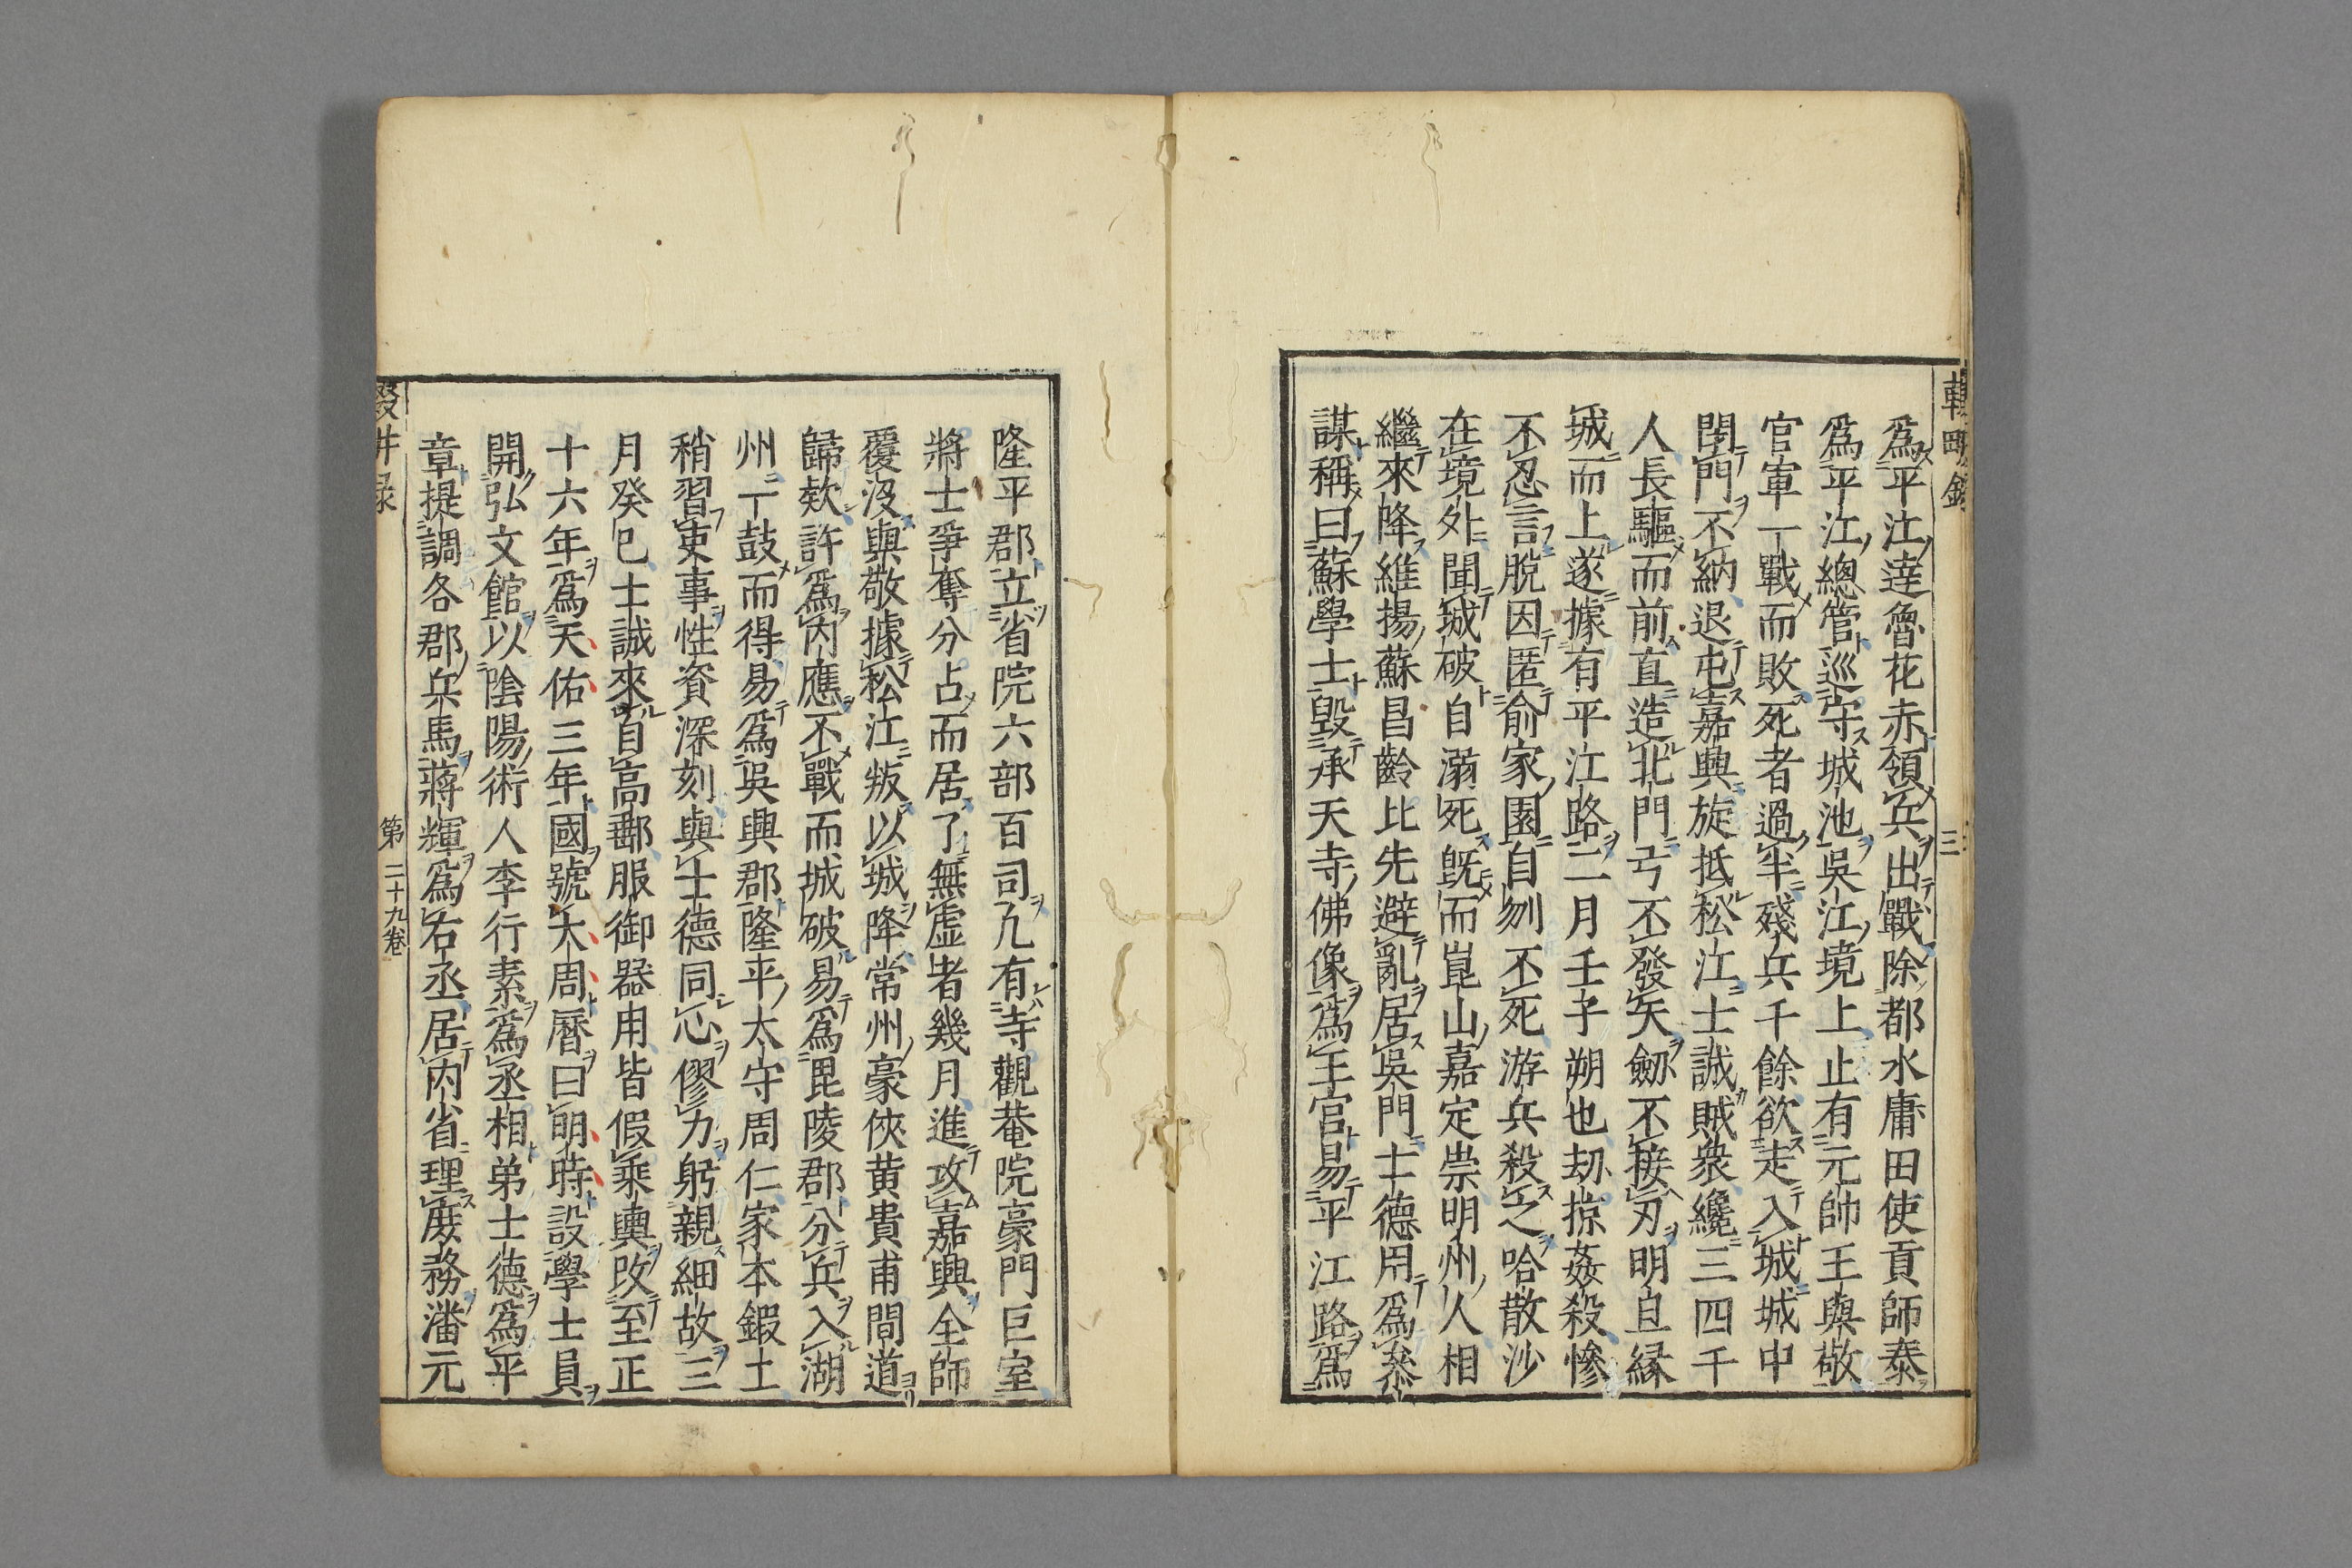 爲平江達魯花赤領兵出戰除都水庸田使貢師泰
爲平江總管巡守城池吳江境上止有元帥王與敬
官軍一戰而敗死者過半殘兵千餘欲走入城城中
閉門不納退屯嘉興旋抵松江士誠賊衆纔三四千
人長驅而前直造北門弓不發矢劒不接刃明旦縁
城而上遂據有平江路二月壬子朔也劫掠姦殺慘
不忍言脫因匿俞家園自刎不死游兵殺之哈散沙
在境外聞城破自溺死旣而崑山嘉定崇明州人相
繼來降維揚蘇昌齡比先避亂居吳門士德用爲叅
謀稱曰蘇學士毀承天寺佛像爲王宮易平江路爲
隆平郡立省院六部百司凢有寺觀菴院豪門巨室
將士爭奪分占而居了無虛者幾月進攻嘉興全師
覆沒與敬據松江叛以城降常州豪俠黄貴甫間道
歸欵許爲內應不戰而城破易爲毘陵郡分兵入湖
州一鼓而得易爲吳興郡隆平太守周仁家本鍛工
稍習吏事性資深刻與士德同心僇力躬親細故三
月癸巳士誠來自高郵服御器用皆假乘輿改至正
十六年爲天佑三年國號大周曆曰明時設學士員
開弘文館以陰陽術人李行素爲丞相弟士德爲平
章提調各郡兵馬蔣輝爲右丞居內省理庶務潘元
第二十九卷